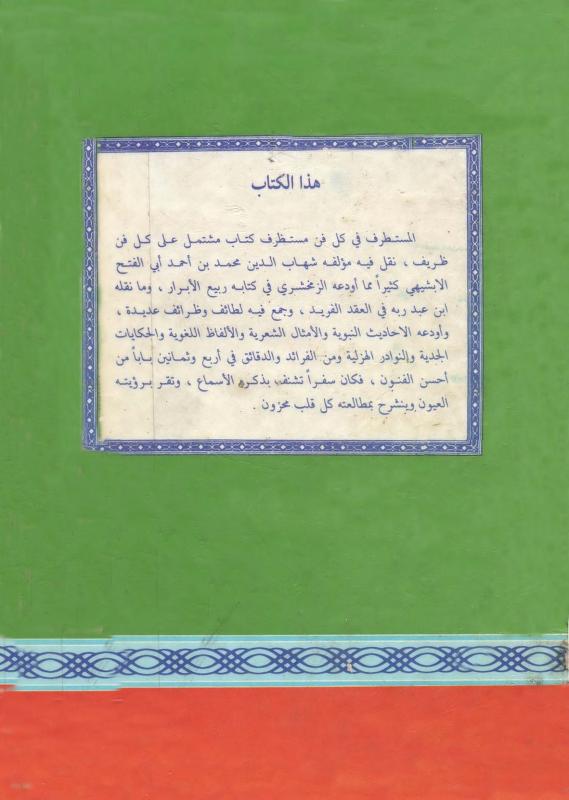 هذا الكتاب
المستطرف في كل فن مستظرف كتاب مشتمل على كل فن
ظريف ، نقل فيه مؤلفه شهاب الدين محمد بن أحمد أبي الفتح
الابشيهي كثيراً مما أودعه الزمخشري في كتابه ربيع الأبرار ، وما نقله
ابن عبد ربه في العقد الفريد ، وجمع فيه لطائف وظرائف عديدة ،
وأودعه الاحاديث النبوية والأمثال الشعرية والألفاظ اللغوية والحكايات
الجدية والنوادر الهزلية ومن الفرائد والدقائق في أربع وثمانين باباً من
أحسن الفنون ، فكان سفراً تشنف بذكره الأسماع ، وتقر برؤيته
العيون وينشرح بمطالعته كل قلب محزون .